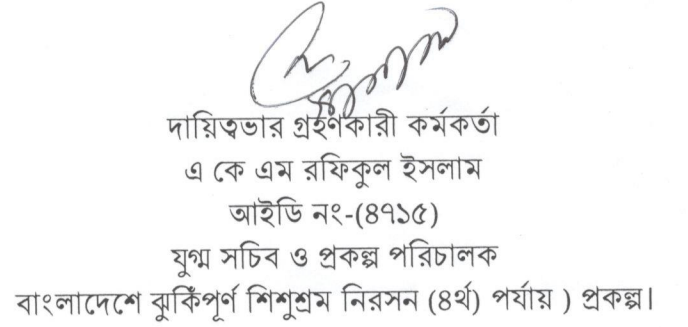 দায়িত্বভার গ্রহণকারী কর্মকর্তা
এ কে এম রফিকুল ইসলাম
আইডি নং-(৪৭১৫)
যুগ্ম সচিব ও প্রকল্প পরিচালক
বাংলাদেশে ঝুকিঁপূর্ণ শিশুশ্রম নিরসন (৪র্থ) পর্যায় ) প্রকল্প।